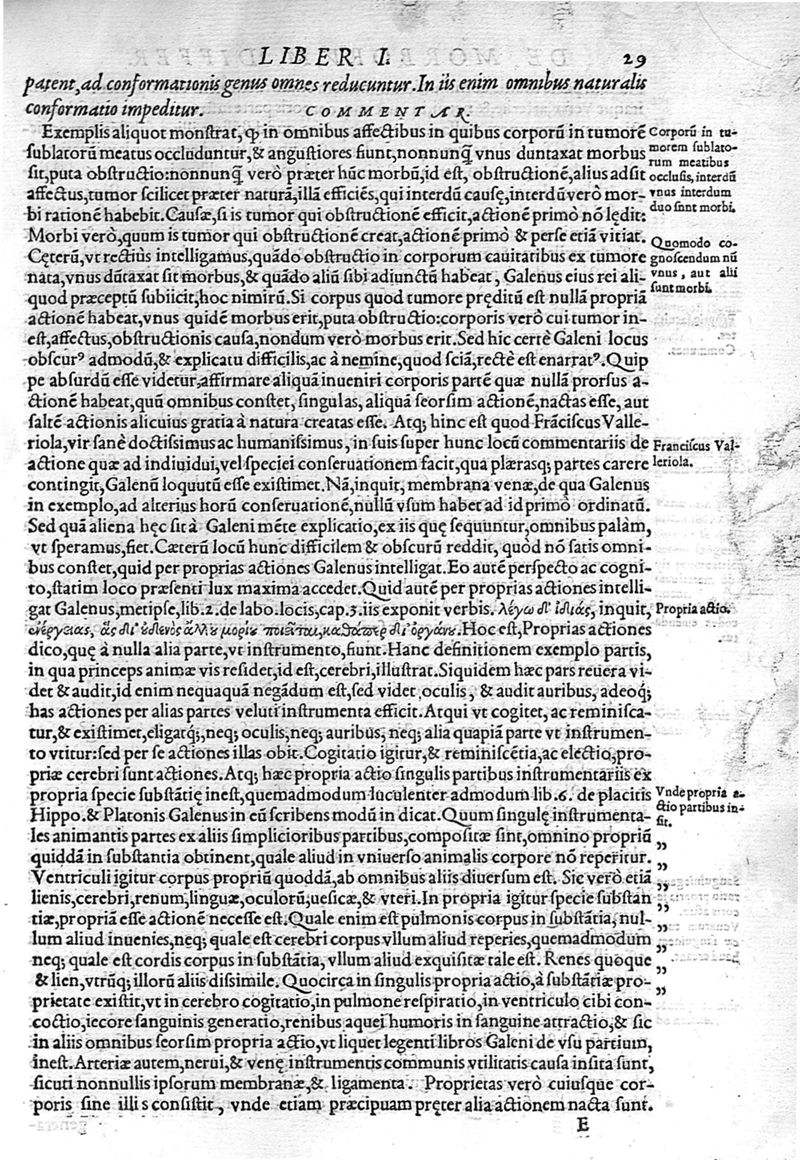 LIBER I. 29
patent, ad conformationis genus omnes reducuntur. In iis enim omnibus naturalis
conformatio impeditur. COMMENTAR.
Exemplis aliquot monstrat, ꝙ in omnibus affectibus in quibus corporũ in tumorẽ
sublatorũ meatus occluduntur, & angustiores fiunt, nonnunq̃ vnus duntaxat morbus
sit, puta obstructio: nonnunq̃ verò præter hũc morbũ, id est, obstructionẽ, alius adsit
affectus, tumor scilicet præter naturã, illã efficiẽs, qui interdũ causę, interdũ verò mor-
bi rationẽ habebit. Causæ, si is tumor qui obstructionẽ efficit, actionẽ primò nõ lędit:
Morbi verò, quum is tumor qui obstructionẽ creat, actionẽ primò & per se etiã vitiat.
Cęterũ, vt rectius intelligamus, quãdo obstructio in corporum cauitatibus ex tumore
nata, vnus dũtaxat sit morbus, & quãdo aliũ sibi adiunctũ habeat, Galenus eius rei ali-
quod præceptũ subiicit, hoc nimirũ. Si corpus quod tumore pręditũ est nullã propriã
actionẽ habeat, vnus quidẽ morbus erit, puta obstructio: corporis verò cui tumor in-
est, affectus, obstructionis causa, nondum verò morbus erit. Sed hic certè Galeni locus
obscurꝰ admodũ, & explicatu difficilis, ac à nemine, quod sciã, rectè est enarratꝰ. Quip
pe absurdũ esse videtur, affirmare aliquã inueniri corporis partẽ quæ nullã prorsus a-
ctionẽ habeat, quũ omnibus constet, singulas, aliquã seorsim actionẽ, nactas esse, aut
saltẽ actionis alicuius gratia à natura creatas esse. Atq; hinc est quod Frãciscus Valle-
riola, vir sanè doctissimus ac humanissimus, in suis super hunc locũ commentariis de
actione quæ ad indiuidui, vel speciei conseruationem facit, qua plærasq; partes carere
contingit, Galenũ loquutũ esse existimet. Nã, inquit, membrana venæ, de qua Galenus
in exemplo, ad alterius horũ conseruationẽ, nullũ vsum habet ad id primò ordinatũ.
Sed quã aliena hęc sit à Galeni mẽte explicatio, ex iis quę sequuntur, omnibus palàm,
vt speramus, fiet. Cæterũ locũ hunc difficilem & obscurũ reddit, quòd nõ satis omni-
bus constet, quid per proprias actiones Galenus intelligat. Eo autẽ perspecto ac cogni-
to, statim loco præsenti lux maxima accedet. Quid autẽ per proprias actiones intelli-
gat Galenus, metipse, lib. 2. de labo. locis, cap. 3. iis exponit verbis. λέγω δ' ἰδίας, inquit,
ἐνεργείας, ἃς δι' οὐδενὸς ἄλλου μορίου ποιεῖται, καθάπερ δι' ὀργάνου. Hoc est, Proprias actiones
dico, quę à nulla alia parte, vt instrumento, fiunt. Hanc definitionem exemplo partis,
in qua princeps animæ vis residet, id est, cerebri, illustrat. Siquidem hæc pars reuera vi-
det & audit, id enim nequaquã negãdum est, sed videt oculis, & audit auribus, adeoq;
has actiones per alias partes veluti instrumenta efficit. Atqui vt cogitet, ac reminisca-
tur, & existimet, eligatq́;, neq; oculis, neq; auribus, neq; alia quapiã parte vt instrumen-
to vtitur: sed per se actiones illas obit. Cogitatio igitur, & reminiscẽtia, ac electio, pro-
priæ cerebri sunt actiones. Atq; hæc propria actio singulis partibus instrumentariis ex
propria specie substãtię inest, quemadmodum luculenter admodum lib. 6. de placitis
Hippo. & Platonis Galenus in eũ scribens modũ indicat. Quum singulę instrumenta-
les animantis partes ex aliis simplicioribus partibus, compositæ sint, omnino propriũ
quiddã in substantia obtinent, quale aliud in vniuerso animalis corpore nõ reperitur.
Ventriculi igitur corpus propriũ quoddã, ab omnibus aliis diuersum est. Sic verò etiã
lienis, cerebri, renum, linguæ, oculorũ, uesicæ, & vteri. In propria igitur specie substan
tiæ, propriã esse actionẽ necesse est. Quale enim est pulmonis corpus in substãtia, nul-
lum aliud inuenies, neq; quale est cerebri corpus vllum aliud reperies, quemadmodum
neq; quale est cordis corpus in substãtia, vllum aliud exquisitæ tale est. Renes quoque
& lien, vtrũq; illorũ aliis dissimile. Quocirca in singulis propria actio, à substãtiæ pro-
prietate existit, vt in cerebro cogitatio, in pulmone respiratio, in ventriculo cibi con-
coctio, iecore sanguinis generatio, renibus aquei humoris in sanguine attractio, & sic
in aliis omnibus seorsim propria actio, vt liquet legenti libros Galeni de vsu partium,
inest. Arteriæ autem, nerui, & venę instrumentis communis vtilitatis causa insita sunt,
sicuti nonnullis ipsorum membranæ, & ligamenta. Proprietas verò cuiusque cor-
poris sine illis consistit, vnde etiam præcipuam pręter alia actionem nacta sunt.
E
Corporũ in tu-
morem sublato-
rum meatibus
occlusis, interdũ
vnus interdum
duo sunt morbi.
Quomodo co-
gnoscendum nũ
vnus, aut alii
sunt morbi.
Franciscus Val-
leriola.
Propria actio.
Vnde propria a-
ctio partibus in-
sit.
„
„
„
„
„
„
„
„